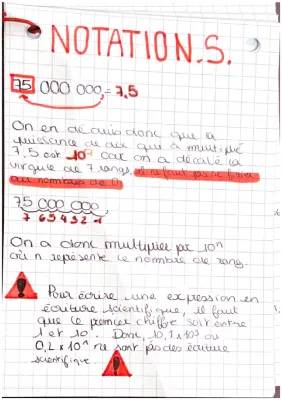 NOTATION.S.
75 000 000 = 7,5
On en déduis donc que la
puissance de dix qui a multiplié
7,5 est 10⁷ car on a décalé la
virgule de 7 rangs, il ne faut pas se fier
au nombre de 0.
75 000 000,
7 6 5 4 3 2 1
On a donc multiplier par 10ⁿ
où n représente le nombre de rang.
Pour écrire une expression en
écriture scientifique, il faut
que le premier chiffre soit entre
1 et 10. Donc, 10,1 x 10² ou
0,2 x 10^ ne sont pas des écriture
scientifique.